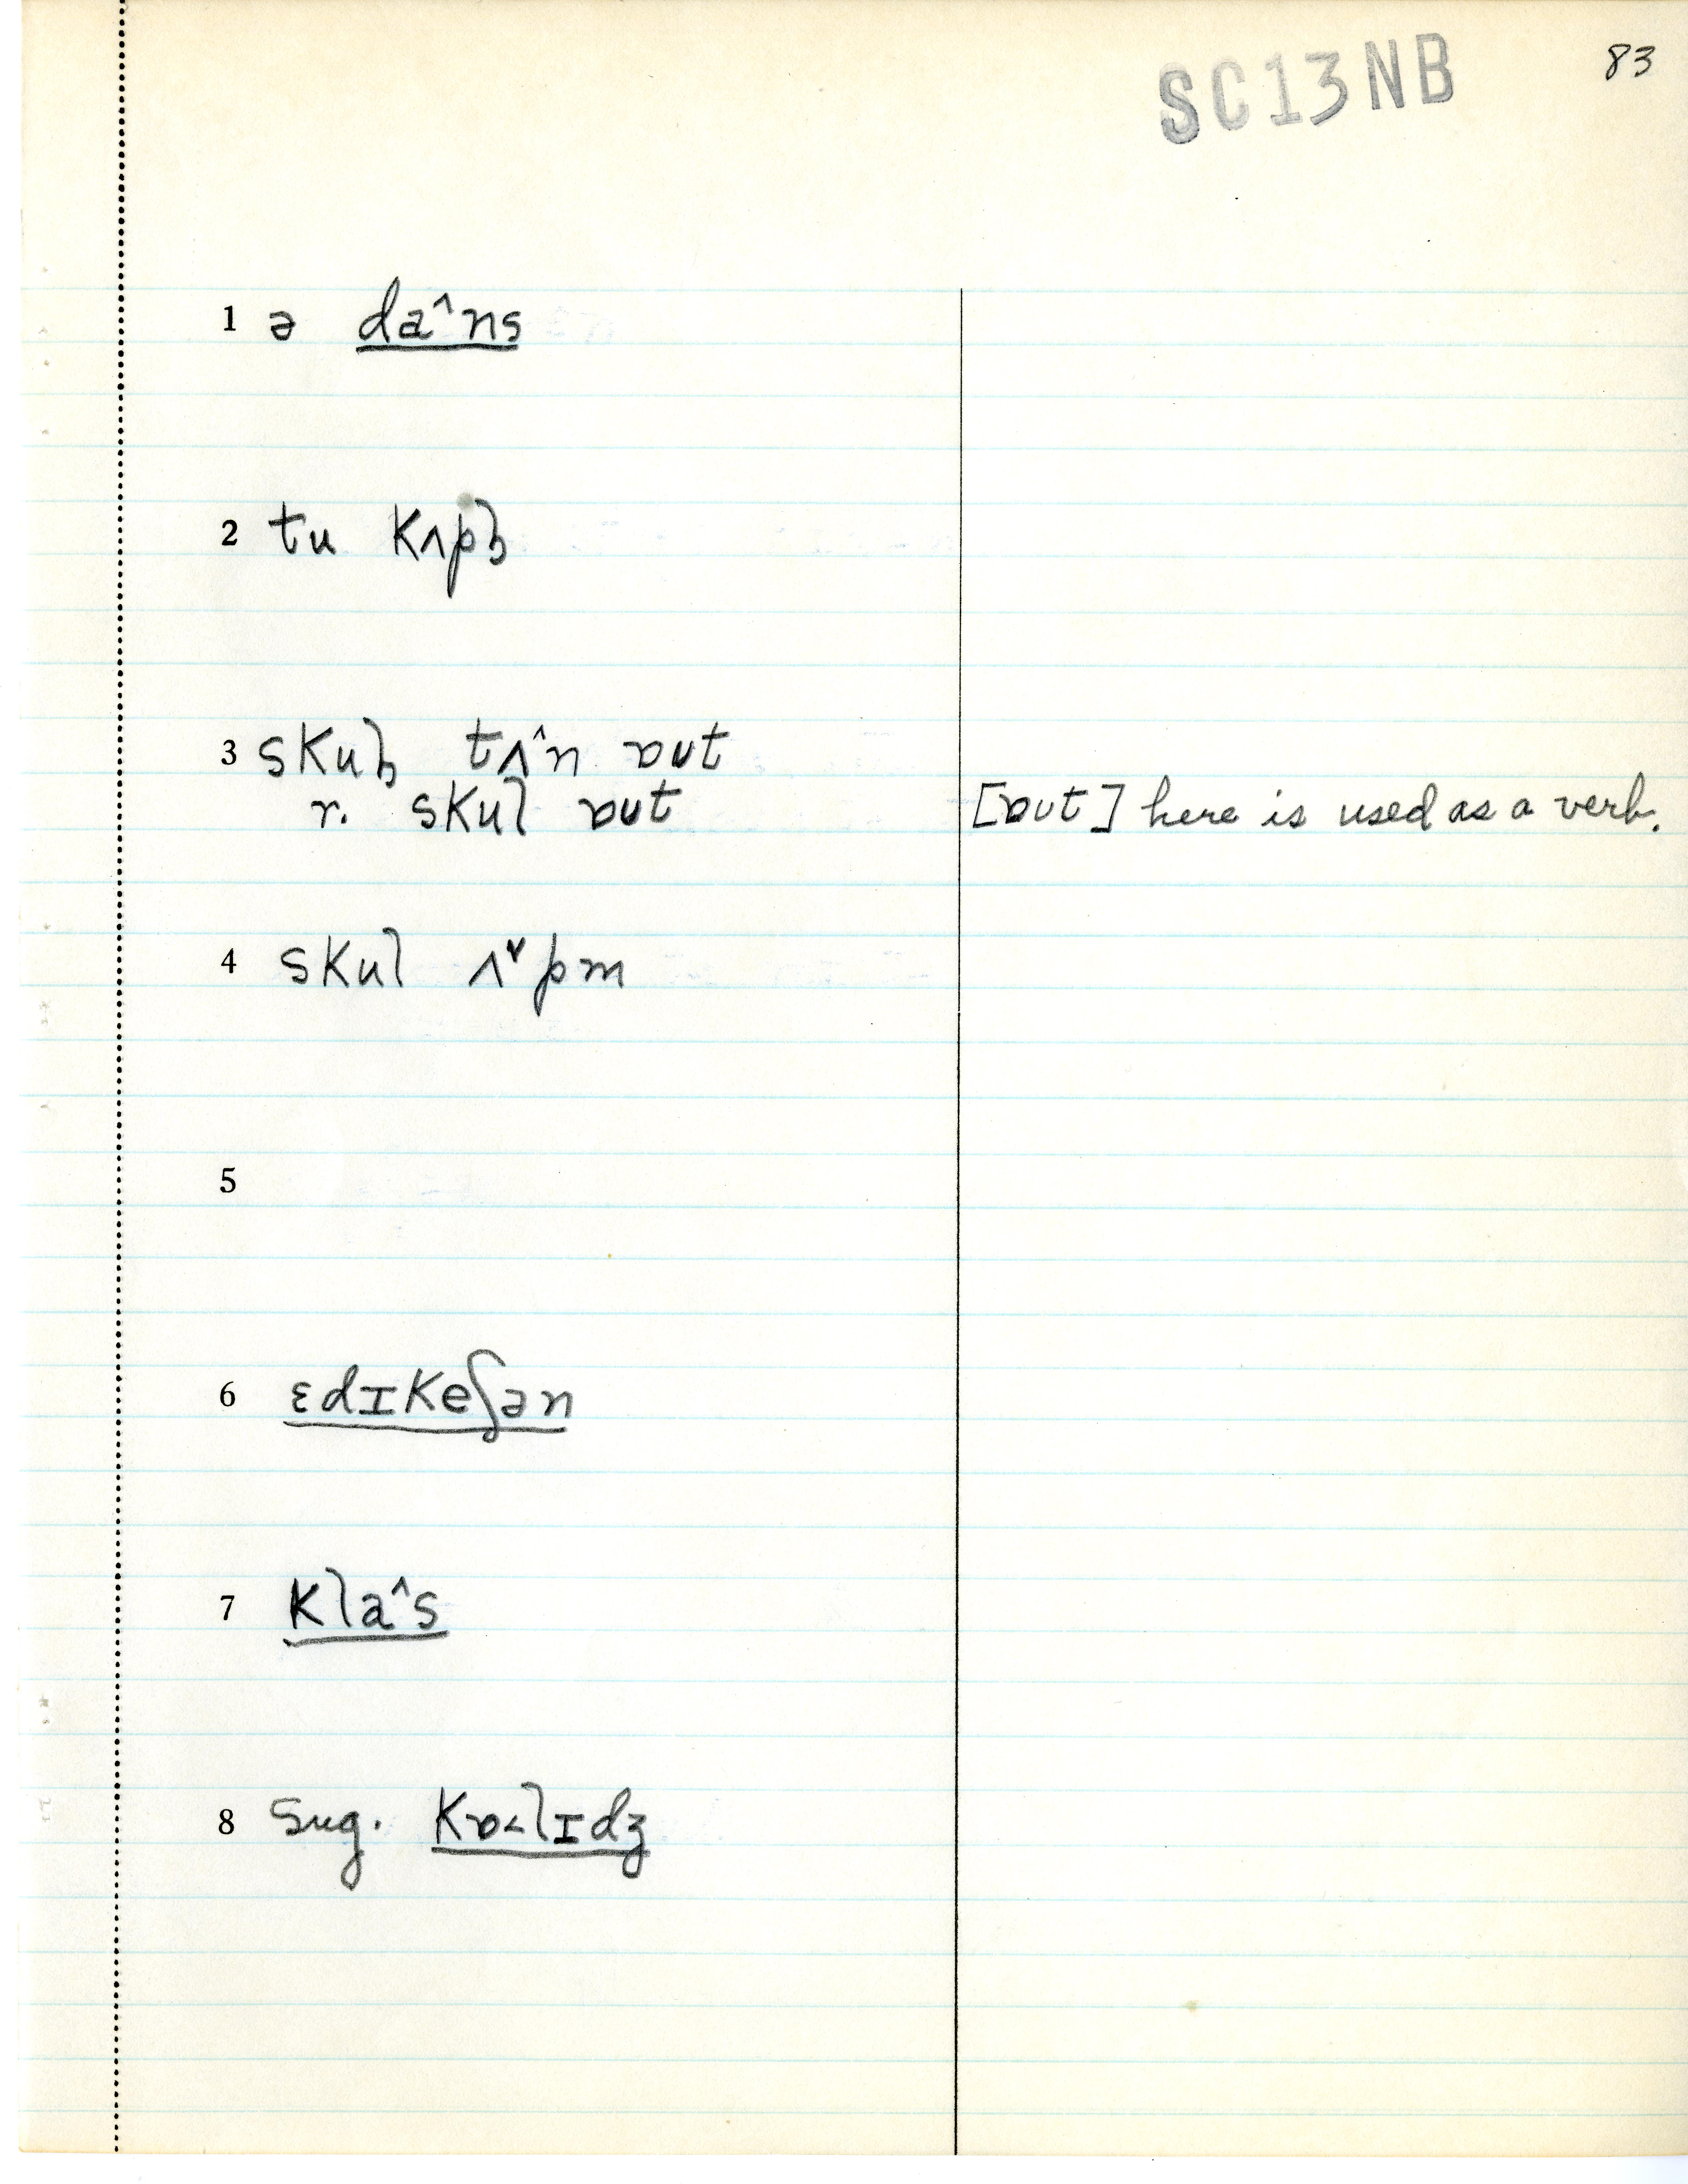 SC13NB 83
1 ə da^ns
2 tu kʌpl̩
3 skul̩ tʌ^n ɒut
r. skul ɒut [ɒut] here is used as a verb.
4 skul ʌ˅pm
5
6 ɛdɪkeʃən
7 kla^s
8 sug. kɒ˂lɪdʒ